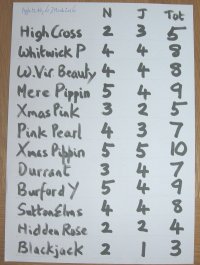 N J Tot
High Cross 2 3 5
Whitwick P 4 4 8
W.Vir Beauty 4 4 8
Mere Pippin 5 4 9
Xmas Pink 3 2 5
Pink Pearl 4 3 7
Xmas Pippin 5 5 10
Durrant 3 4 7
Burford Y 5 4 9
Sutton Elms 4 4 8
Hidden Rose 2 2 4
Blackjack 2 1 3